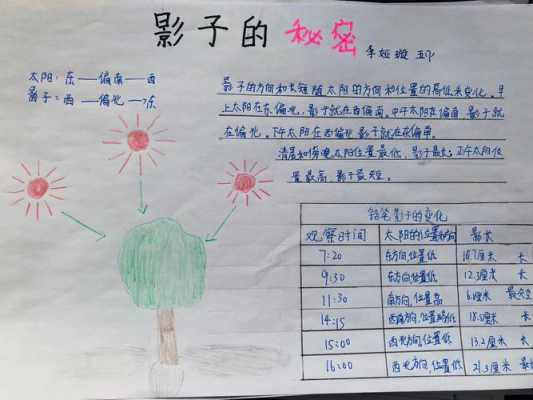 影子的秘密
太阳：东—偏南—西
影子：西—偏北—东
影子的方向和长短随太阳的方向和位置的高低来变化。早
上太阳在东偏北，影子就在西偏南。中午太阳在偏南，影子就
在偏北。下午太阳在西偏北，影子就在东偏南。
清晨和傍晚太阳位置最低，影子最长；正午太阳位
置最高，影子最短。
铅笔影子的变化
观察时间 太阳的位置和方向 影长
7:20 东方向,位置低 厘米 长
9:30 东方向位置低 12.3厘米 长
11:30 南方向,位置高 厘米 最短
14:15 西南方向,位置略低 18.0厘米 长
15:00 西北方向,位置低 13.2厘米 长
16:00 西北方向,位置低 21.3厘米